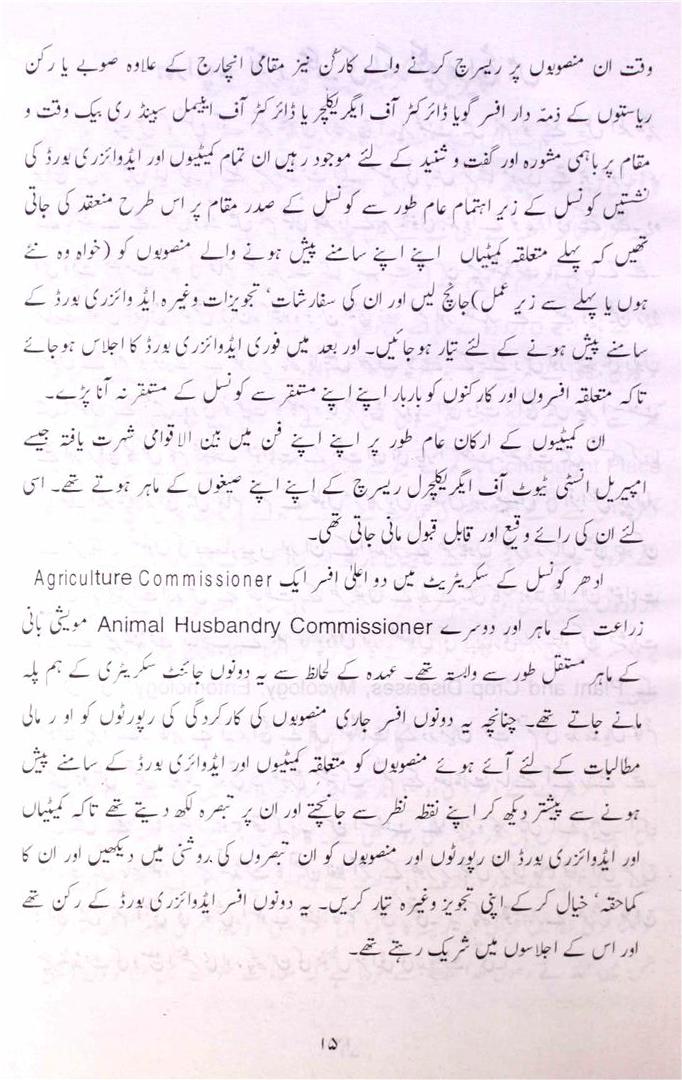 وقت ان منصوبوں پر ریسرچ کرنے والے کارکن نیز مقامی انچارج کے علاوہ صوبے یا رکن
ریاستوں کے ذمّہ دار افسر گویا ڈائرکٹر آف ایگریکلچر یا ڈائرکٹر آف اینیمل ہسبینڈری بیک وقت و
مقام پر باہمی مشورہ اور گفت و شنید کے لئے موجود رہیں ان تمام کمیٹیوں اور ایڈوائزری بورڈ کی
نشستیں کونسل کے زیر اہتمام عام طور سے کونسل کے صدر مقام پر اس طرح منعقد کی جاتی
تھیں کہ پہلے متعلقہ کمیٹیاں اپنے اپنے سامنے پیش ہونے والے منصوبوں کو (خواہ وہ نئے
ہوں یا پہلے سے زیر عمل) جانچ لیں اور ان کی سفارشات، تجویزات وغیرہ ایڈوائزری بورڈ کے
سامنے پیش ہونے کے لئے تیار ہو جائیں۔ اور بعد میں فوری ایڈوائزری بورڈ کا اجلاس ہو جائے
تاکہ متعلقہ افسروں اور کارکنوں کو بار بار اپنے اپنے مستقر سے کونسل کے مستقر نہ آنا پڑے۔
ان کمیٹیوں کے ارکان عام طور پر اپنے اپنے فن میں بین الاقوامی شہرت یافتہ جیسے
امپیریل انسٹی ٹیوٹ آف ایگریکلچرل ریسرچ کے اپنے اپنے صیغوں کے ماہر ہوتے تھے۔ اسی
لئے ان کی رائے وقیع اور قابل قبول مانی جاتی تھی۔
ادھر کونسل کے سکریٹریٹ میں دو اعلیٰ افسر ایک Agriculture Commissioner
زراعت کے ماہر اور دوسرے Animal Husbandry Commissioner مویشی بانی
کے ماہر مستقل طور سے وابستہ تھے۔ عہدہ کے لحاظ سے یہ دونوں جائنٹ سکریٹری کے ہم پلہ
مانے جاتے تھے۔ چنانچہ یہ دونوں افسر جاری منصوبوں کی کارکردگی کی رپورٹوں کو اور مالی
مطالبات کے لئے آئے ہوئے منصوبوں کو متعلقہ کمیٹیوں اور ایڈوائزی بورڈ کے سامنے پیش
ہونے سے پیشتر دیکھ کر اپنے نقطہ نظر سے جانچتے اور ان پر تبصرہ لکھ دیتے تھے تاکہ کمیٹیاں
اور ایڈوائزری بورڈ ان رپورٹوں اور منصوبوں کو ان تبصروں کی روشنی میں دیکھیں اور ان کا
کماحقہ، خیال کر کے اپنی تجویز وغیرہ تیار کریں۔ یہ دونوں افسر ایڈوائزری بورڈ کے رکن تھے
اور اس کے اجلاسوں میں شریک رہتے تھے۔
۱۵